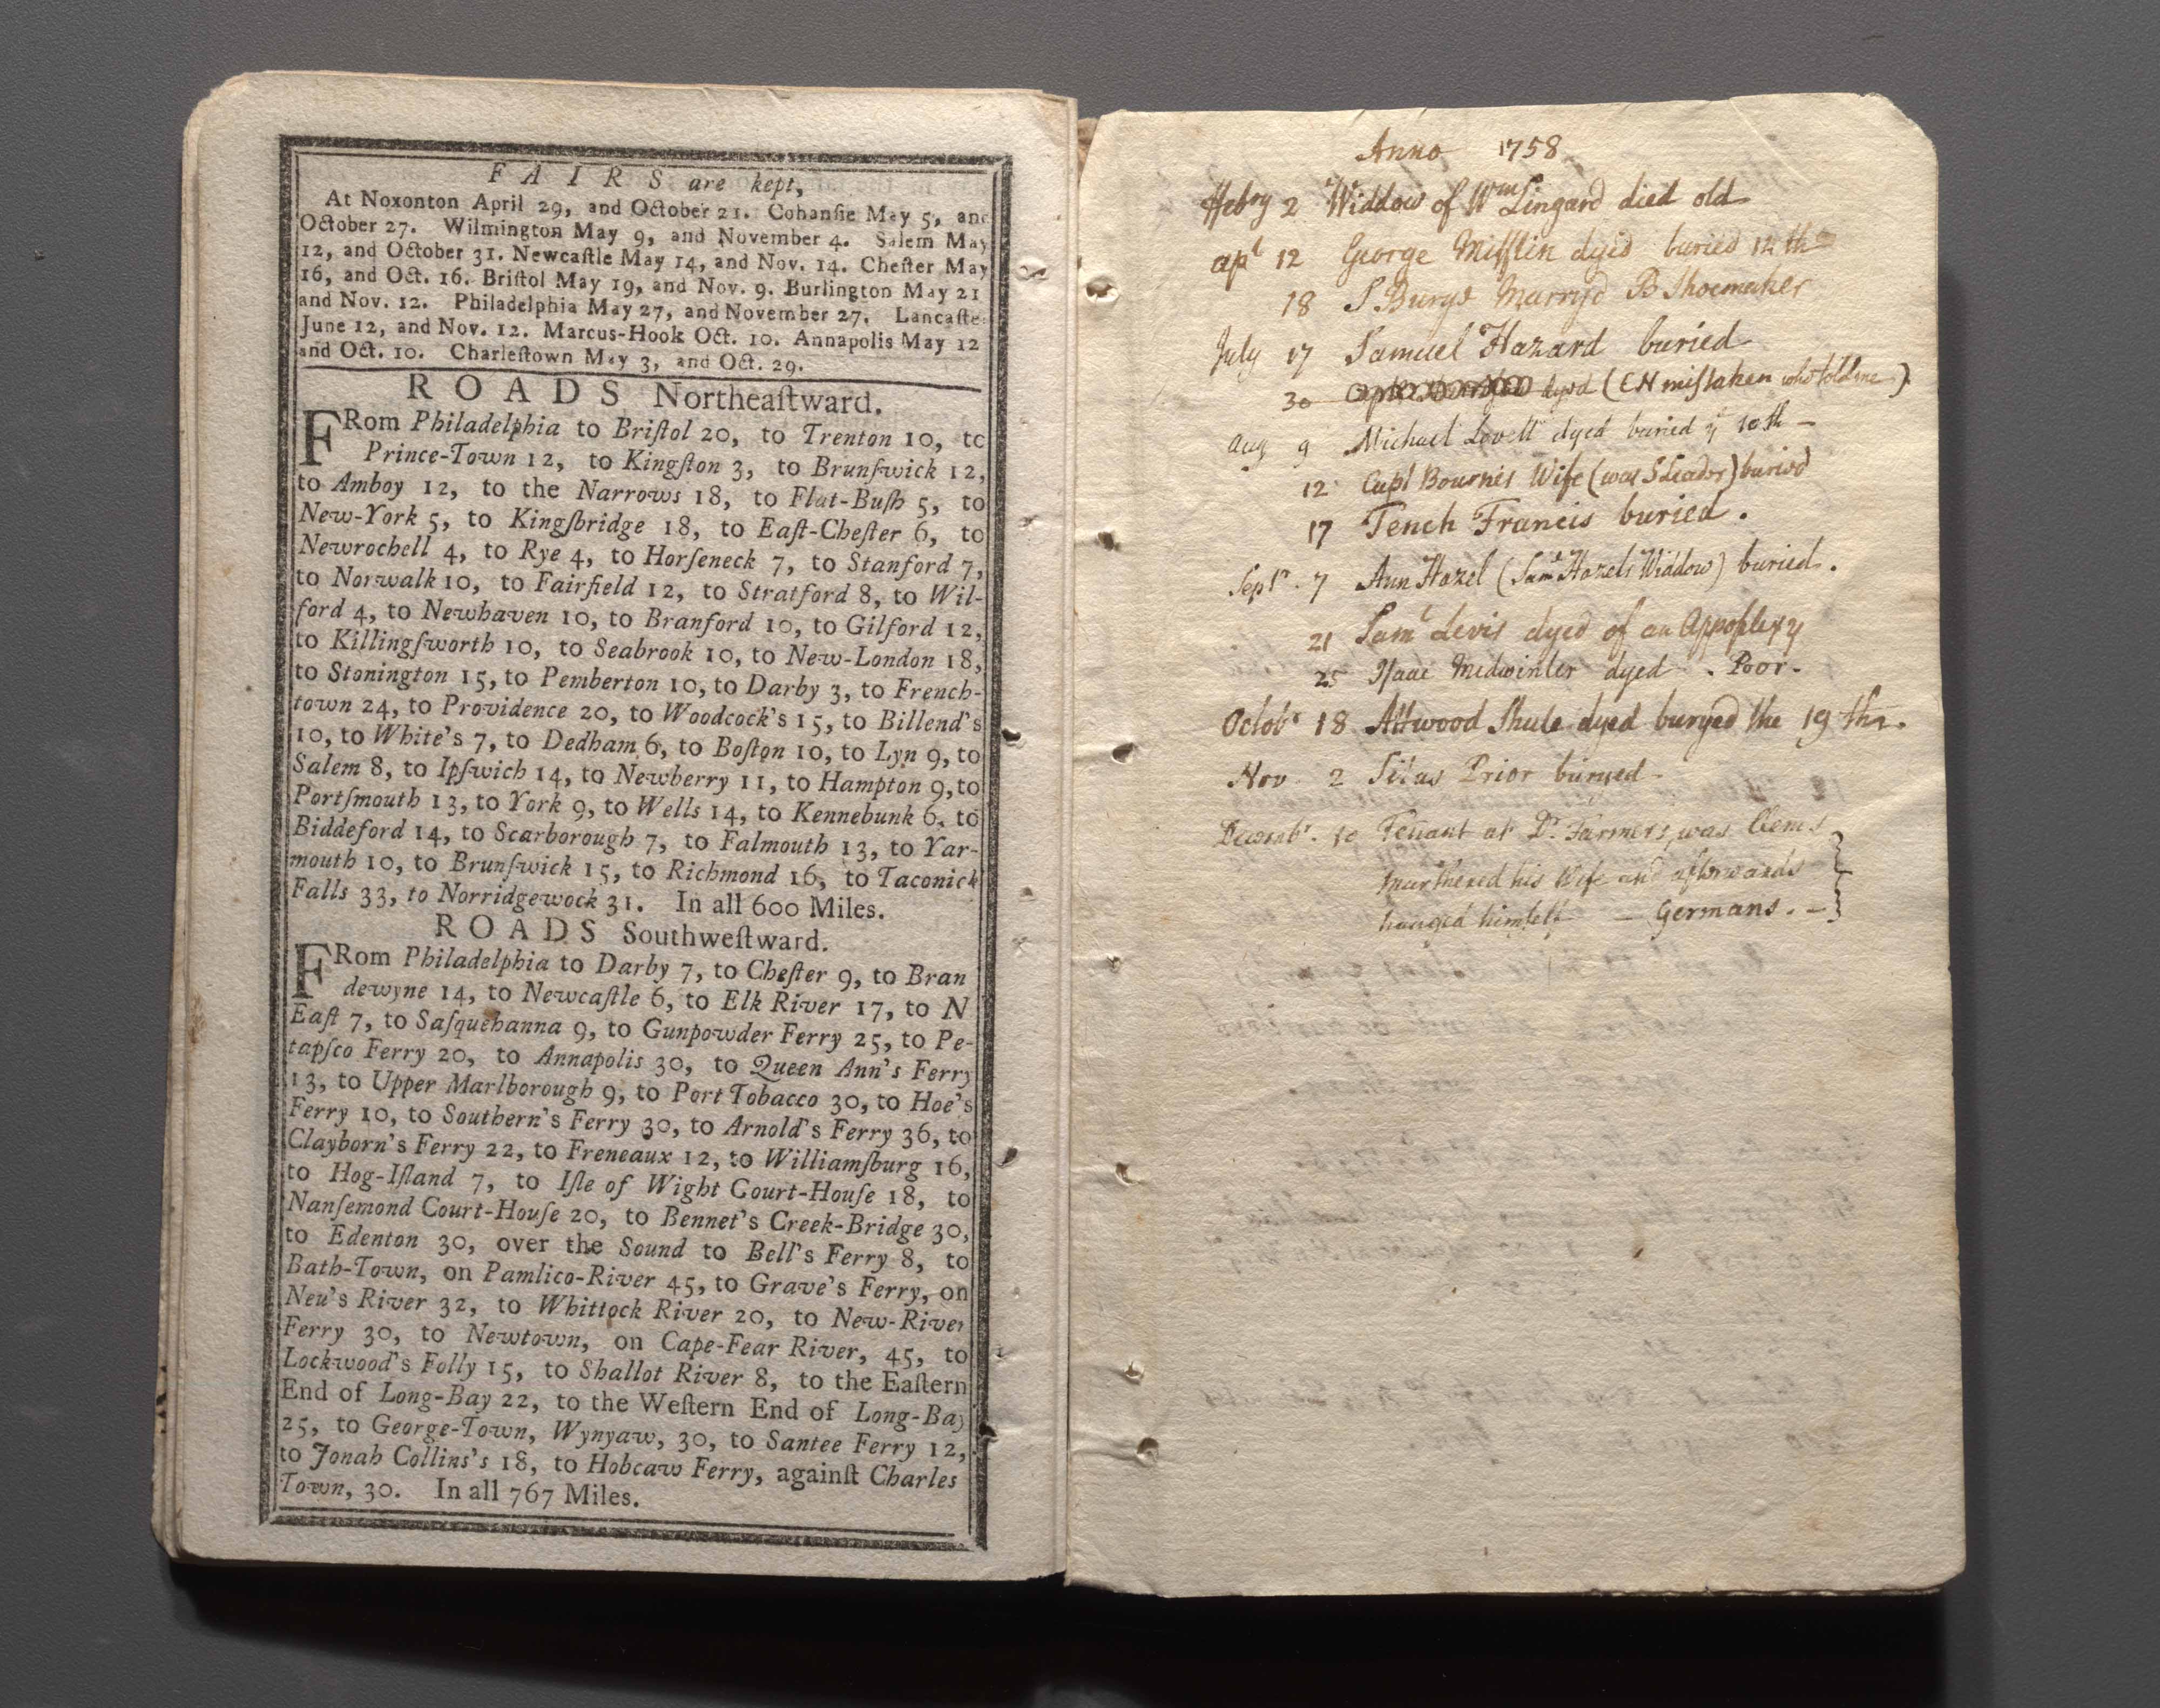 FAIRS are kept,
At Noxonton April 29, and October 21. Cohanſie May 5, and
October 27. Wilmington May 9, and November 4. Salem May
12, and October 31. Newcaſtle May 14, and Nov. 14. Cheſter May
16, and Oct. 16. Briſtol May 19, and Nov. 9. Burlington May 21
and Nov. 12. Philadelphia May 27, and November 27. Lancaſte
June 12, and Nov. 12. Marcus-Hook Oct. 10. Annapolis May 12
and Oct. 10. Charleſtown May 3, and Oct. 29.
ROADS Northeaſtward.
FRom Philadelphia to Briſtol 20, to Trenton 10, to
Prince-Town 12, to Kingſton 3, to Brunſwick 12,
to Amboy 12, to the Narrows 18, to Flat-Buſh 5, to
New-York 5, to Kingſbridge 18, to Eaſt-Cheſter 6, to
Newrochell 4, to Rye 4, to Horſeneck 7, to Stanford 7,
to Norwalk 10, to Fairfield 12, to Stratford 8, to Wil-
ford 4, to Newhaven 10, to Branford 10, to Gilford 12,
to Killingſworth 10, to Seabrook 10, to New-London 18,
to Stonington 15, to Pemberton 10, to Darby 3, to French-
town 24, to Providence 20, to Woodcock's 15, to Billend's
10, to White's 7, to Dedham 6, to Boſton 10, to Lyn 9, to
Salem 8, to Ipſwich 14, to Newberry 11, to Hampton 9, to
Portſmouth 13, to York 9, to Wells 14, to Kennebunk 6, to
Biddeford 14, to Scarborough 7, to Falmouth 13, to Yar-
mouth 10, to Brunſwick 15, to Richmond 16, to Taconick
Falls 33, to Norridgewock 31. In all 600 Miles.
ROADS Southweſtward.
FRom Philadelphia to Darby 7, to Cheſter 9, to Bran
dewyne 14, to Newcaſtle 6, to Elk River 17, to N
Eaſt 7, to Saſquehanna 9, to Gunpowder Ferry 25, to Pe-
tapſco Ferry 20, to Annapolis 30, to Queen Ann's Ferry
13, to Upper Marlborough 9, to Port Tobacco 30, to Hoe's
Ferry 10, to Southern's Ferry 30, to Arnold's Ferry 36, to
Clayborn's Ferry 22, to Freneaux 12, to Williamſburg 16,
to Hog-Iſland 7, to Iſle of Wight Court-Houſe 18, to
Nanſemond Court-Houſe 20, to Bennet's Creek-Bridge 30,
to Edenton 30, over the Sound to Bell's Ferry 8, to
Bath-Town, on Pamlico-River 45, to Grave's Ferry, on
Neu's River 32, to Whittock River 20, to New-River
Ferry 30, to Newtown, on Cape-Fear River, 45, to
Lockwood's Folly 15, to Shallot River 8, to the Eaſtern
End of Long-Bay 22, to the Weſtern End of Long-Bay
25, to George-Town, Wynyaw, 30, to Santee Ferry 12,
to Jonah Collins's 18, to Hobcaw Ferry, againſt Charles
Town, 30. In all 767 Miles.
Anno 1758
Febry 2 Widdow of Wm Lingard died old
apl 12 George Mifflin dyed buried 14th
18 S Burge Marryd B Shoemaker
July 17 Samuel Hazard buried
30 dyed (EN mistaken who told me)
Aug 9 Michael Lovell dyed buried ye 10th
12 Capt Bournes Wife (was S Leader) buried
17 Tench Francis buried.
Septr. 7 Ann Hazel (Saml Hazels Widdow) buried.
21 Saml Levis dyed of an Appoplexy
25 Isaac Medwinter dyed. Poor-
Octobr 18 Attwood Shute dyed buryed the 19th.
Nov 2 Silas Prior buryed
Decembr. 10 Tenant at Dr. Farmers, was Clems
murthered his Wife and afterwards
hanged himself — Germans.